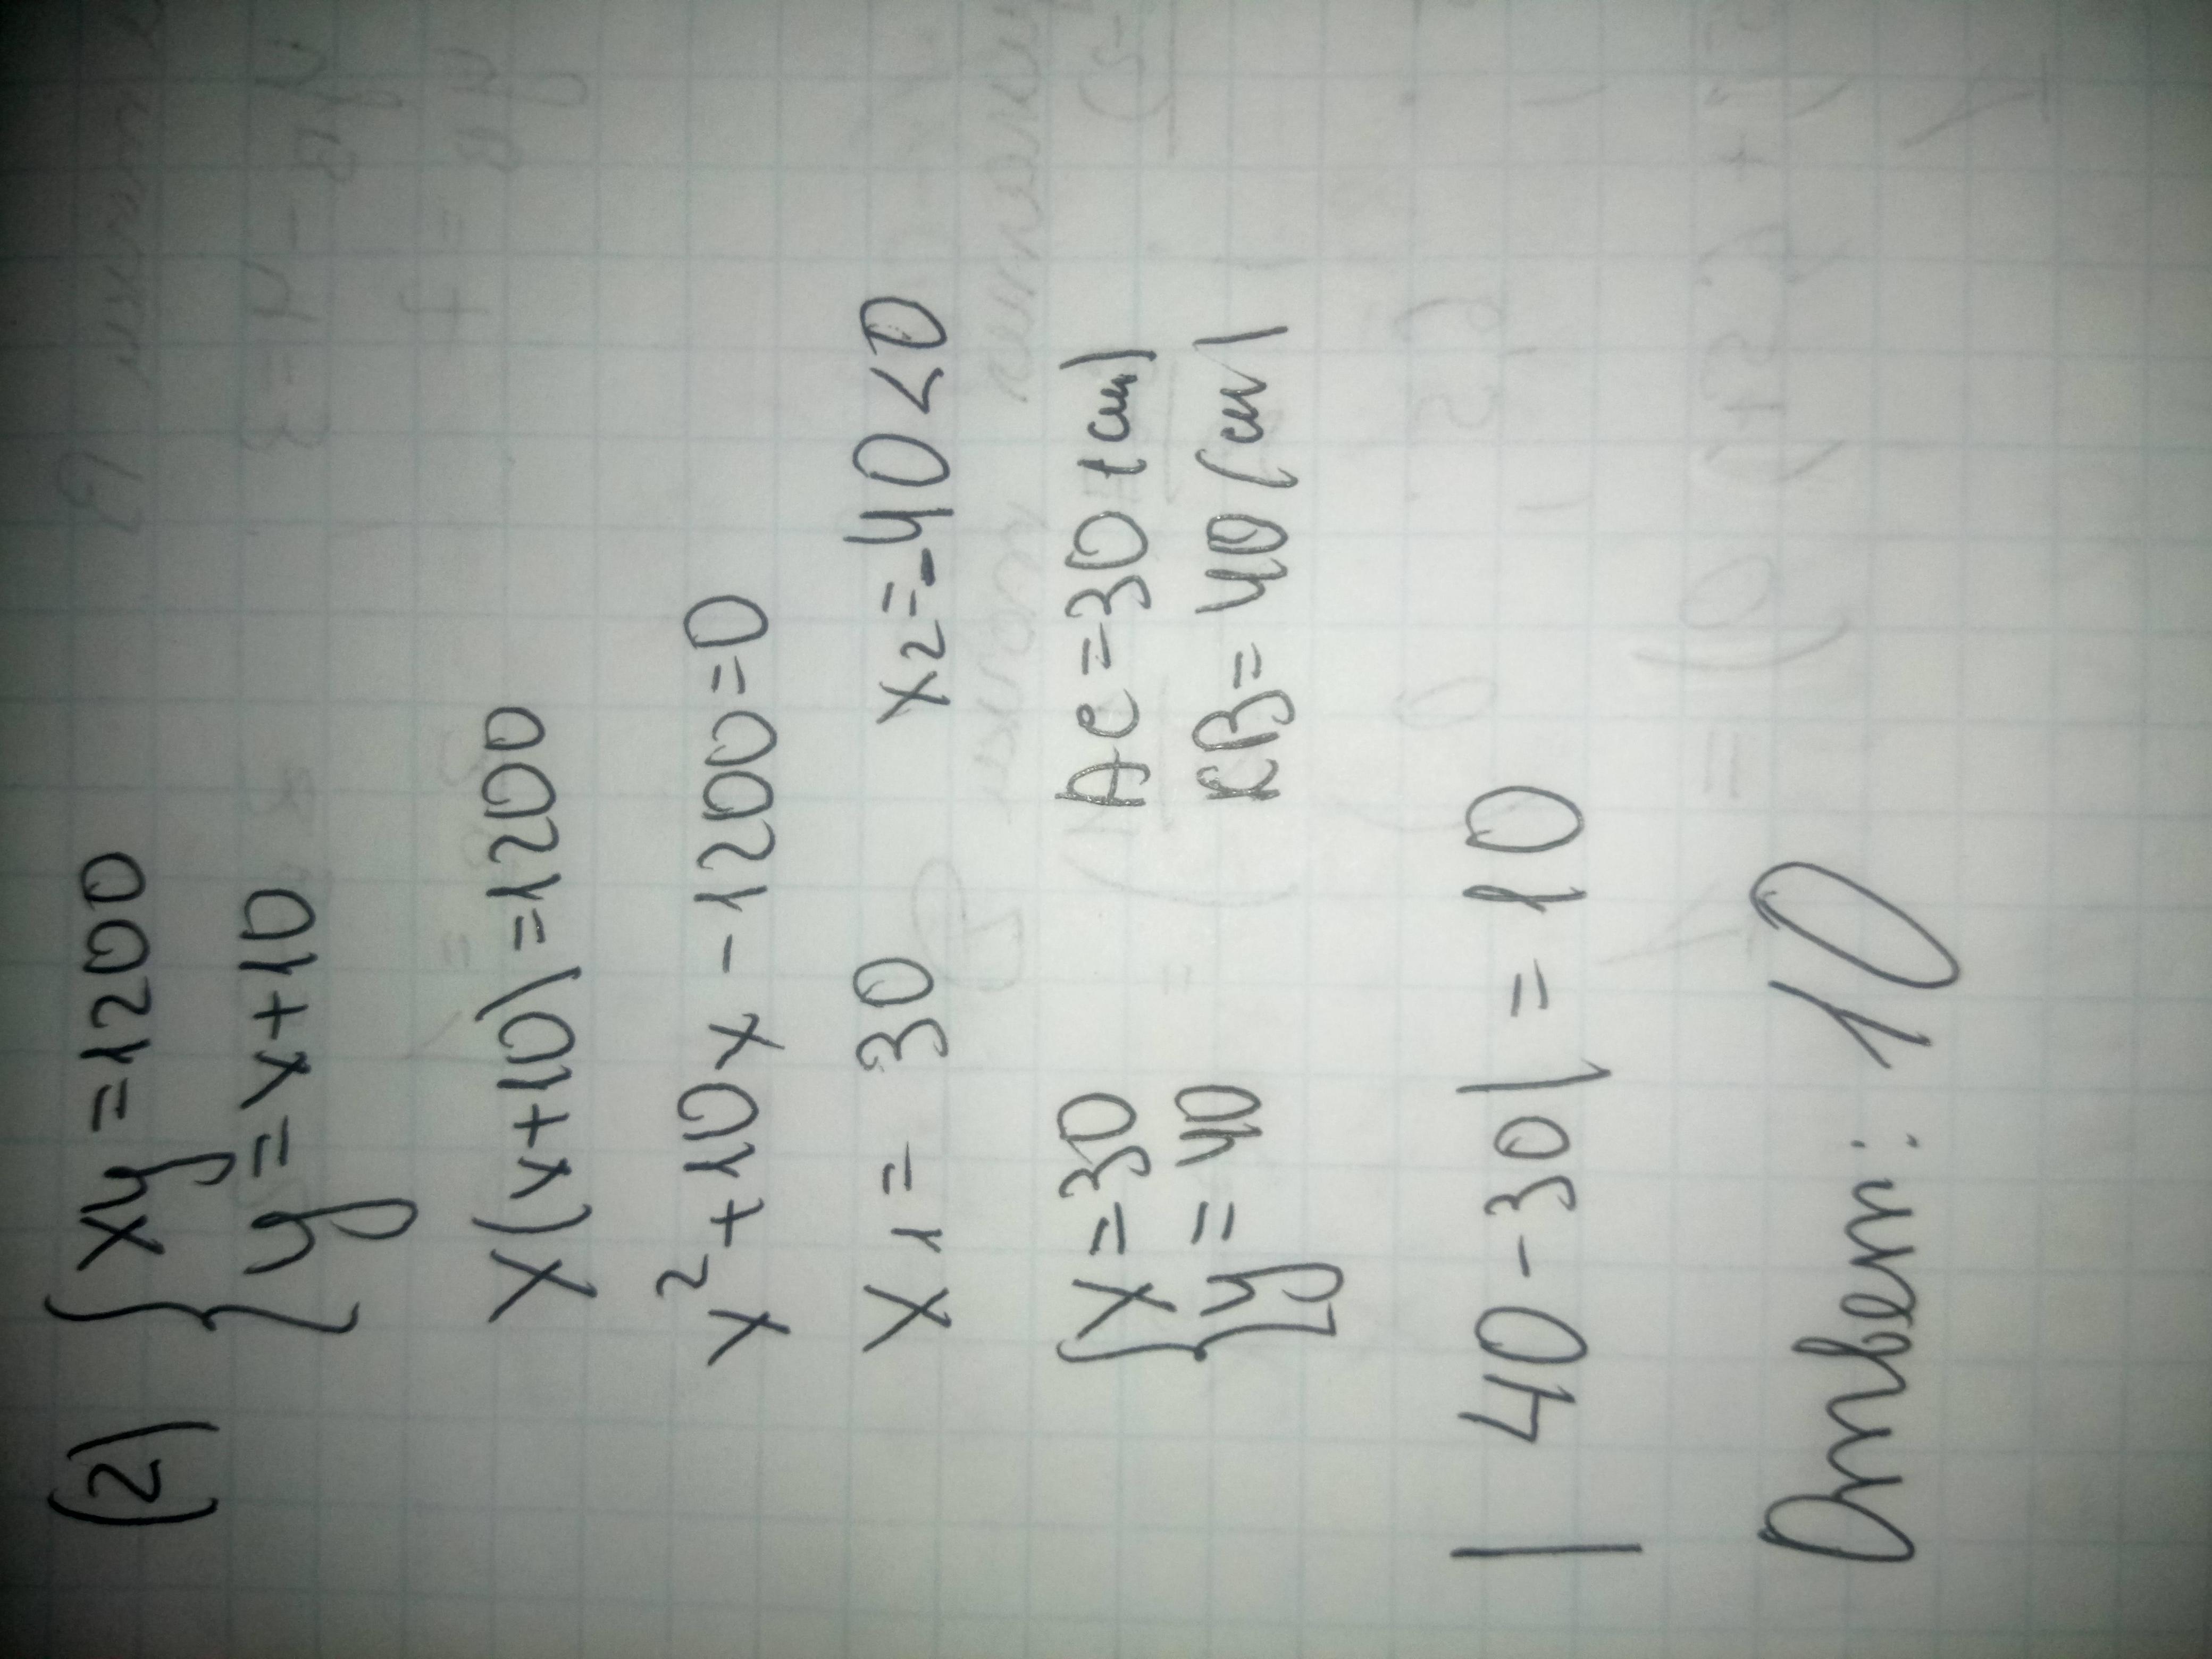 (2) { xy = 1200
y = x + 10
x(x+10) = 1200
x² + 10x - 1200 = 0
x₁ = 30 x₂ = -40 < 0
{ x = 30 AC = 30 (см)
y = 40 KB = 40 (см)
| 40 - 30 | = 10
Ответ: 10